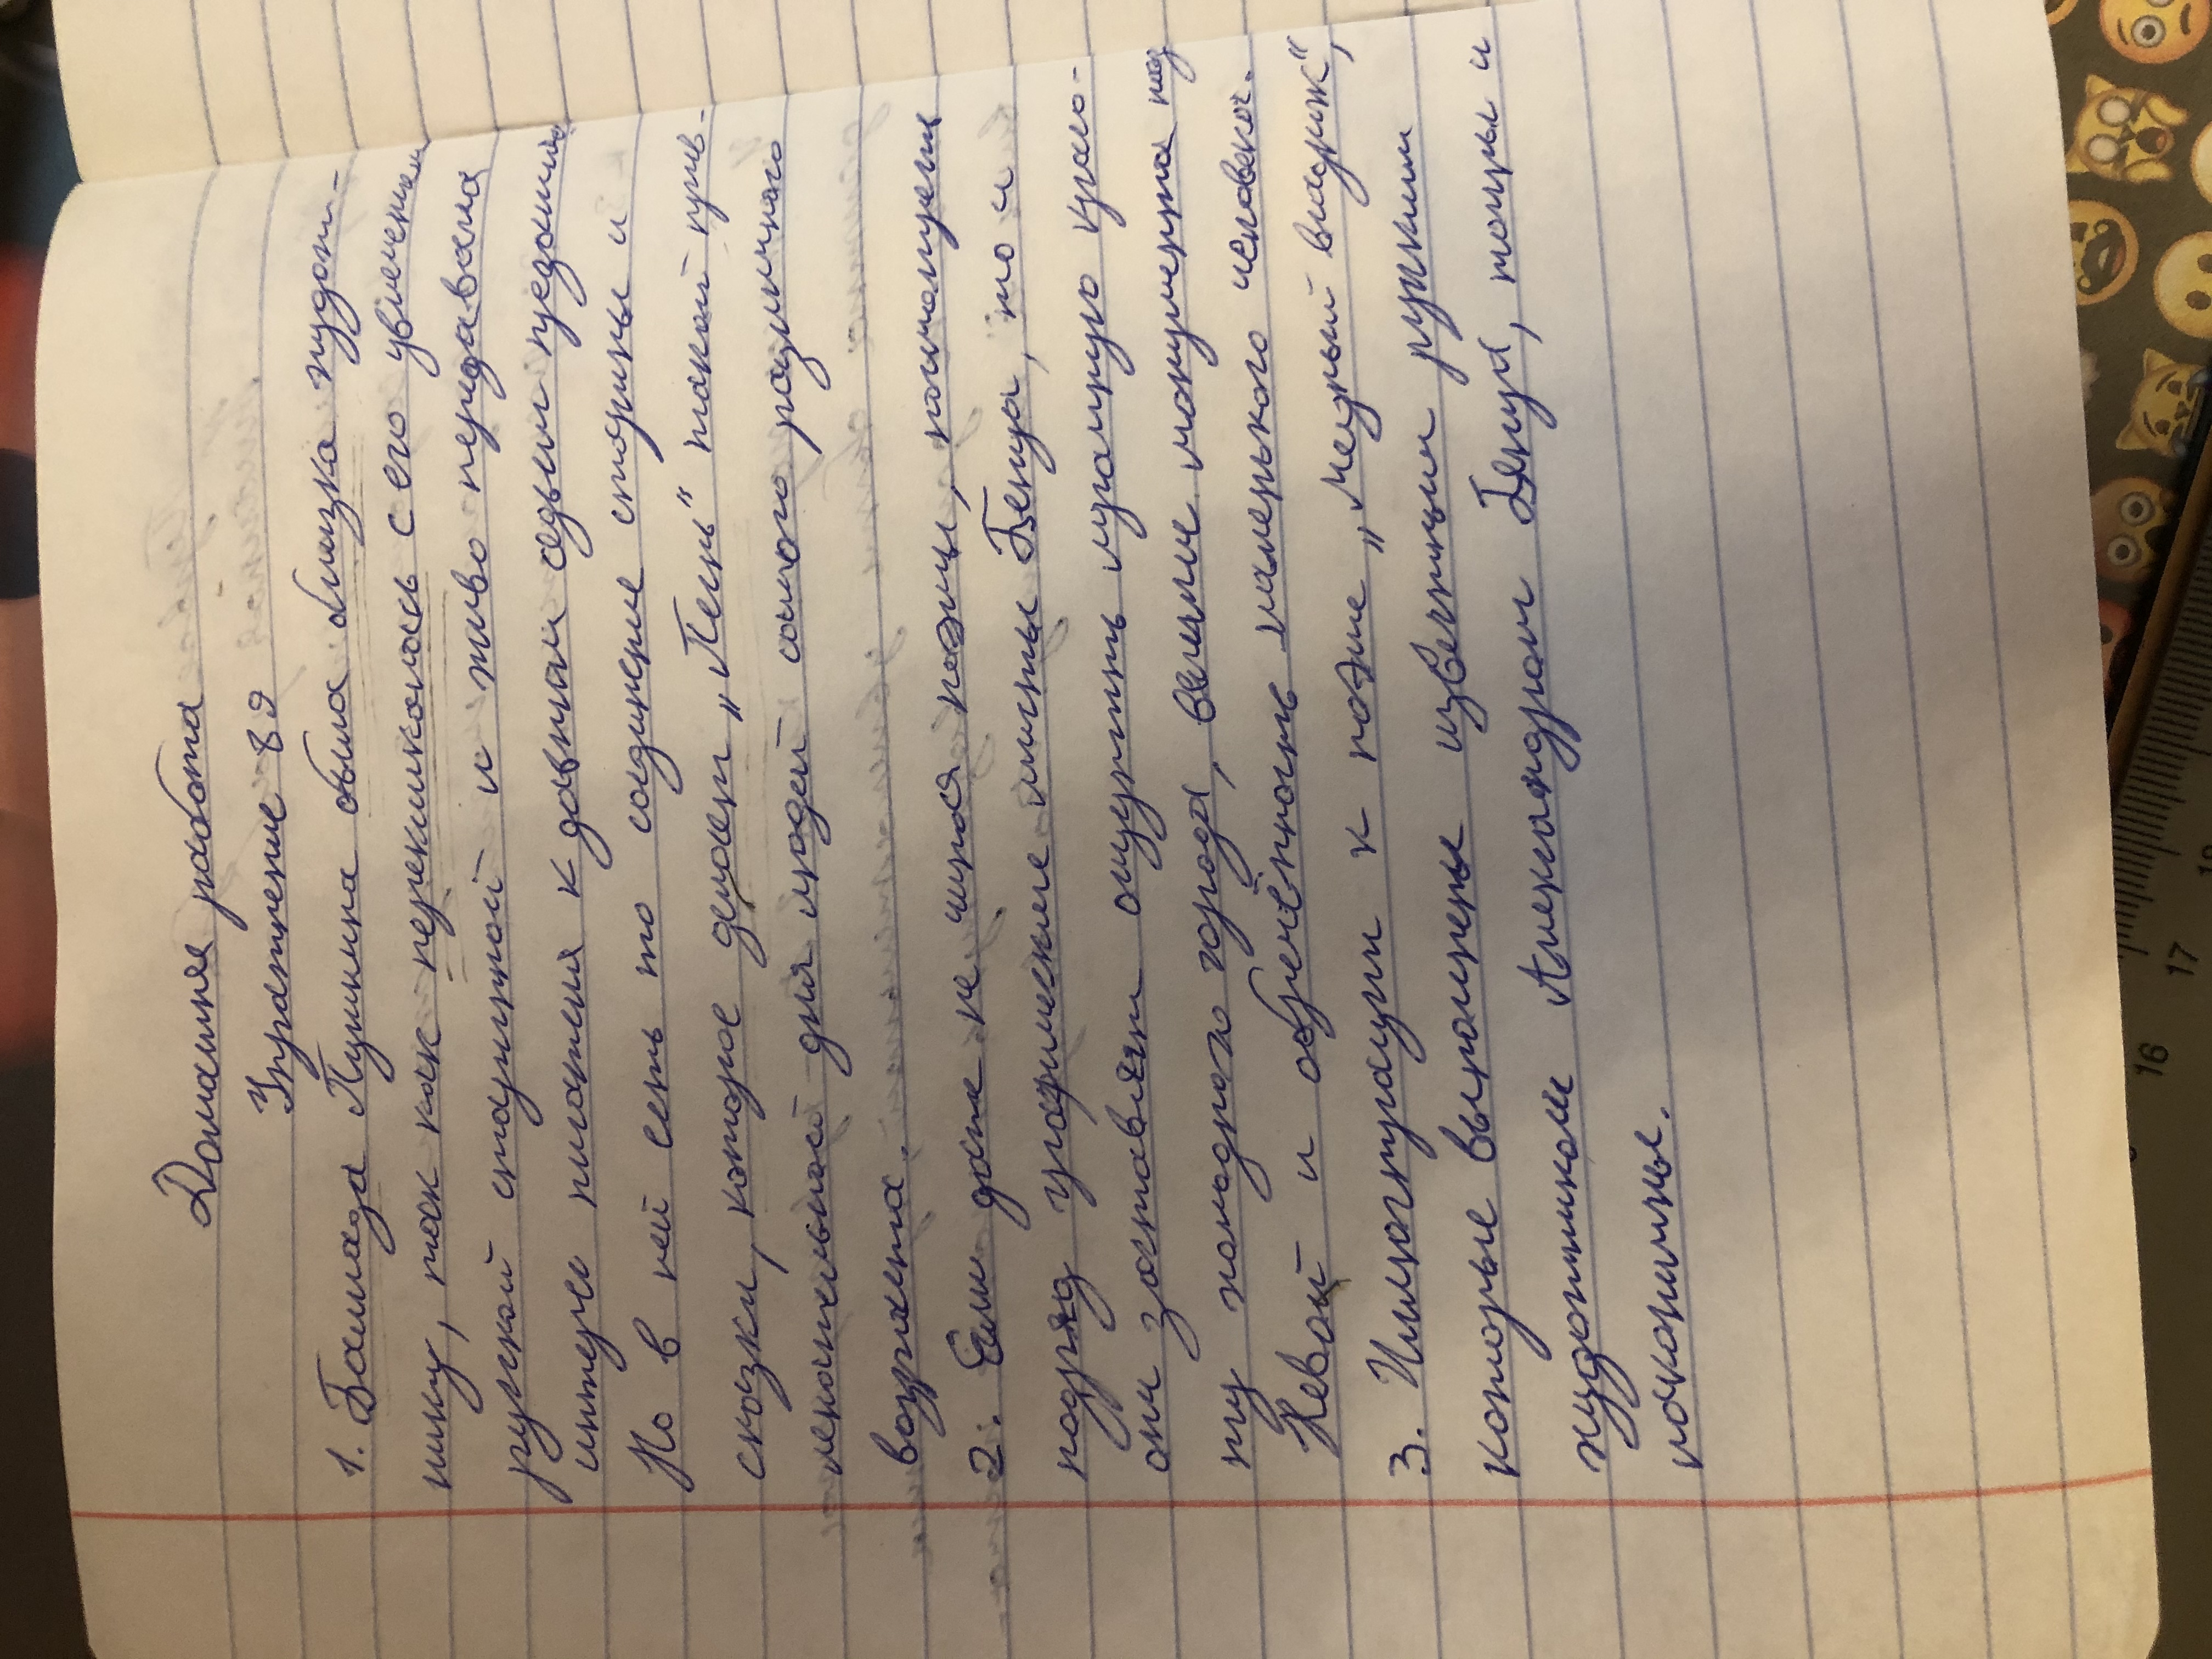 Домашняя работа
Упражнение 89
1. Баллада Пушкина была близка художн-
нику, так как перекликалась с его увлечением
русской стариной и живо передавала
интерес писателя к давным седым преданиям.
Но в ней есть то соединение старины и
сказки, которое делает „Песнь“ такой прив-
лекательной для людей самого различного
возраста.
2. Если даже не читая поэмы, посмотреть
подряд графические листы Бенуа, то и
они заставят ощутить мрачную красо-
ту холодного города, величие монумента над
Невой и обречённость маленького человека.
3. Иллюстрации к поэме „Медный всадник“,
которые выполнены известным русским
художником Александром Бенуа, точны и
лаконичны.
16
17
18